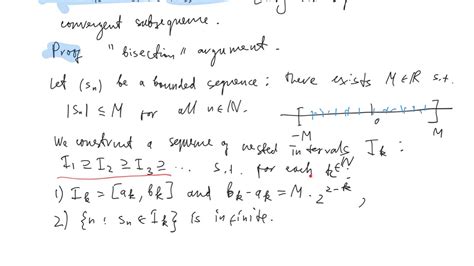 convergent subsequence.
Proof "bisection" argument.
Let (sₙ) be a bounded sequence: there exists M∈ℝ s.t.
|sₙ| ≤ M for all n∈ℕ.
-M 0 M
We construct a sequence of nested intervals Iₖ :
I₁ ⊇ I₂ ⊇ I₃ ⊇ ... s.t. for each k∈ℕ:
1) Iₖ = [aₖ, bₖ] and bₖ-aₖ = M · 2²⁻ᵏ,
2) {n : sₙ ∈ Iₖ} is infinite.